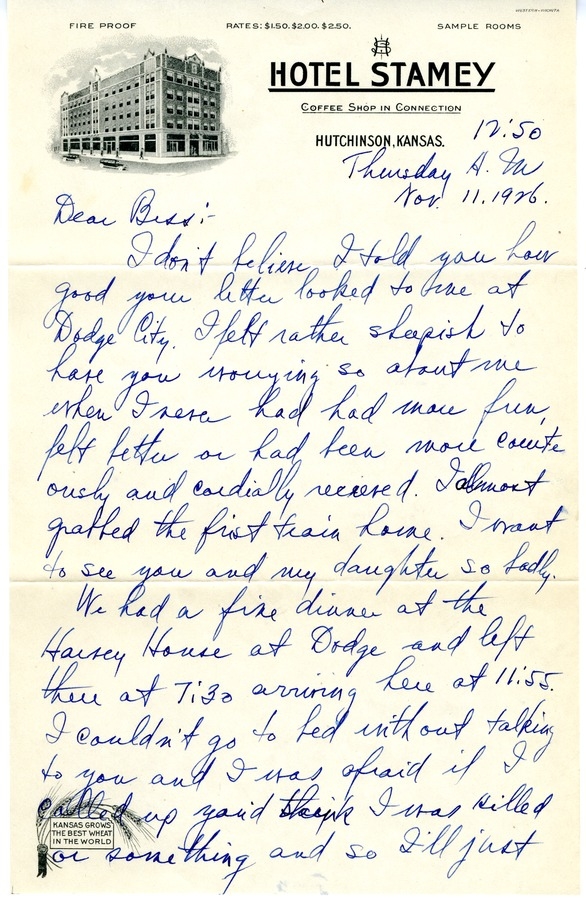 WESTERN-WICHITA
FIRE PROOF RATES: $1.50. $2.00. $2.50. SAMPLE ROOMS
HS
HOTEL STAMEY
COFFEE SHOP IN CONNECTION
HUTCHINSON, KANSAS.
12:50
Thursday A. M
Nov. 11, 1926.
Dear Bess:-
I don't believe I told you how
good your letter looked to me at
Dodge City. I felt rather sheepish to
have you worrying so about me
when I never had had more fun,
felt better or had been more courte
ously and cordially received. I almost
grabbed the first train home. I want
to see you and my daughter so badly.
We had a fine dinner at the
Harvey House at Dodge and left
there at 7:30 arriving here at 11:55.
I couldn't go to bed without talking
to you and I was afraid if I
called up you'd think I was killed
or something and so I'll just
KANSAS GROWS
THE BEST WHEAT
IN THE WORLD